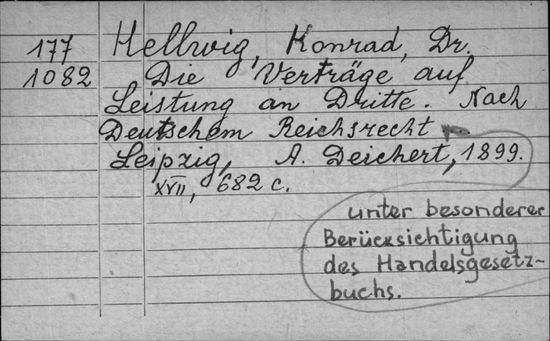 177 Hellwig, Konrad, Dr.
1082 Die Verträge auf
Leistung an Dritte. Nach
Deutschem Reichsrecht
Leipzig, A. Deichert, 1899.
XVII, 682 c.
unter besonderer
Berücksichtigung
des Handelsgesetz-
buchs.